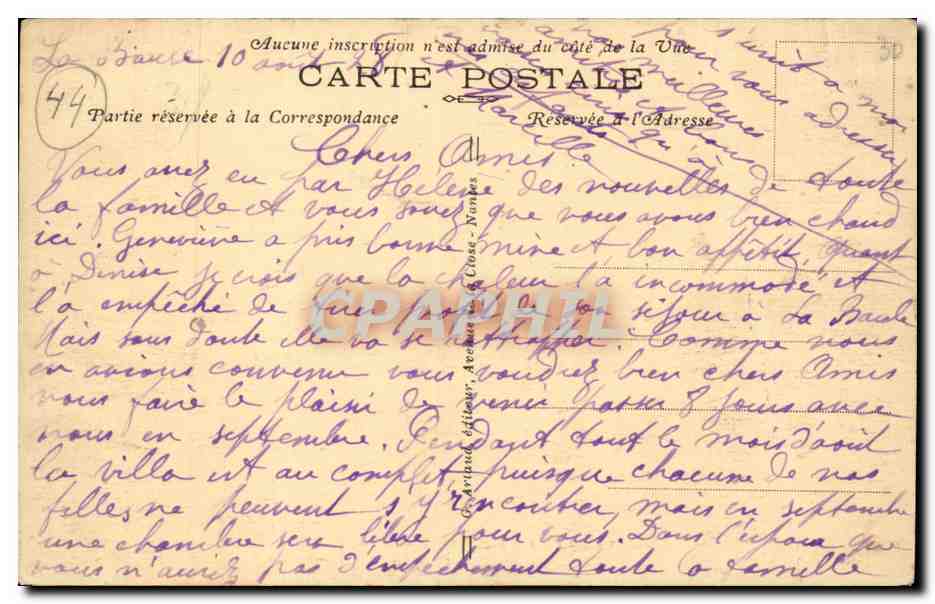 La Baule 10 août 28
Aucune inscription n'est admise du côté de la Vue
CARTE POSTALE
44
30
Partie réservée à la Correspondance
Réservée à l'Adresse
Chers Amis
Vous avez eu par Hélène des nouvelles de toute
la famille et vous savez que nous avons bien chaud
ici. Geneviève a pris bonne mine et bon appétit, quant
à Denise je crois que la chaleur l'a incommodé et
l'a empêché de bien profiter de son séjour à La Baule
Mais sans doute elle va se rattraper. Comme nous
en avions convenu vous voudrez bien chers Amis
nous faire le plaisir de venir passer 8 jours avec
nous en septembre. Pendant tout le mois d'août
la villa est au complet puisque chacune de nos
filles ne peuvent s'y rencontrer, mais en septembre
une chambre sera libre pour vous. Dans l'espoir que
vous n'aurez pas d'empêchement toute la famille
s'unit à moi
pour vous adresser
nos meilleures
amitiés
Marcelle
P. Artaud, éditeur, Avenue de la Close - Nantes
CPAPHIL